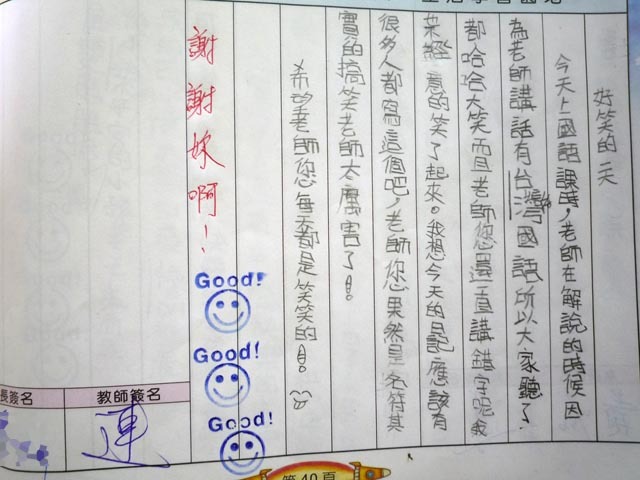 好笑的一天
今天上國語課時,老師在解說的時候因
為老師講話有台灣國語所以大家聽了
都哈哈大笑而且老師您還一直講錯字呢我
經意的笑了起來。我想今天的日記應該有
很多人都寫這個吧,老師您果然是名符其
實的搞笑老師太厲害了!
希望老師您每天都是笑笑的!
謝謝妳啊!
Good!
Good!
Good!
教師簽名
連
長簽名
第40頁